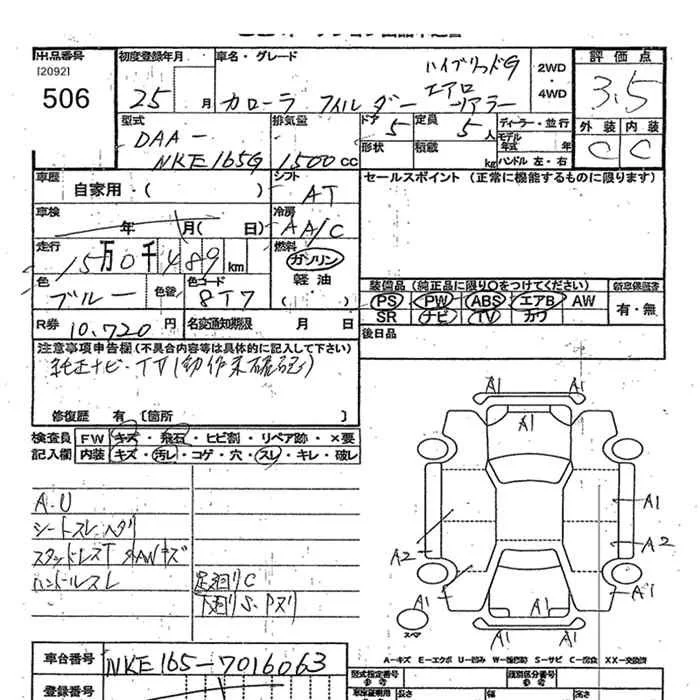 出品番号
[2092]
506
初度登録年月
25 月
車名・グレード
ハイブリッドG
カローラ フィルダー エアロ ツアラー
2WD
・
4WD
評価点
3.5
外装 内装
C C
型式
DAA-
NKE165G
排気量
1500cc
ドア 5
定員 5人
形状
積載 kg
ディーラー・並行
モデル
年式 年
ハンドル 左・右
車歴
自家用・( )
シフト
AT
セールスポイント (正常に機能するものに限ります)
車検
年 月( 日)
冷房
AA/C
走行
15万0千489km
燃料
ガソリン
軽油
・( )
色
ブルー
色替
色コード
8T7
装備品 (純正品に限り○をつけてください)
PS PW ABS エアB AW
SR ナビ TV カワ
新車保証書
有・無
R券 10,720円
名変通知期限 月 日
後日品
注意事項申告欄(不具合内容等は具体的に記入して下さい)
純正ナビ・TV(動作未確認)
修復歴 有 〔箇所 〕
検査員
記入欄
FW キズ・飛石・ヒビ割・リペア跡・×要
内装 キズ・汚レ・コゲ・穴・スレ・キレ・破レ
A.U
シートスレ ヘタリ
スタッドレスT 
ハンドルスレ
足廻りC
下廻りS.Pズリ
A1 A1
A1
A1
A2
A2
A1
A1
A1
A1
スペア
A…キズ E…エクボ U…凹み S…サビ C…腐食 XX…交換済
車台番号 NKE165-7016063
登録番号
型式指定番号
類別区分番号
長さ 幅 高さ